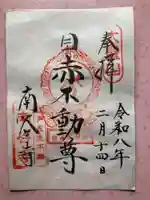 奉拝
令和八年
二月十四日
目赤不動尊
南谷寺